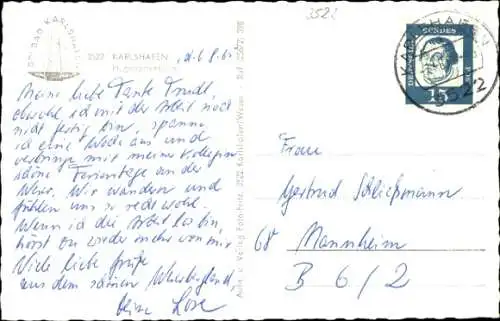 3522
SOLBAD KARLSHAFEN
3522 KARLSHAFEN
Hugenottenturm
d. 6. 8. 65
Meine liebe Tante Trudl,
obwohl ich mit der Arbeit noch
nicht fertig bin, spanne
ich eine Woche aus und
verbringe mit meiner Kollegin
schöne Ferientage an der
Weser. Wir wandern und
fühlen uns so recht wohl.
Wenn ich die Arbeit los bin,
hörst du wieder mehr von mir.
Viele liebe Grüße
aus dem schönen Weserbergland,
Deine Lore
Aufn. u. Verlag Foto 3522 Karlshafen/Weser
DEUTSCHE BUNDESPOST
15
KARLSHAFEN
3522
Frau
Gertrud Schließmann
68 Mannheim
B 6/2